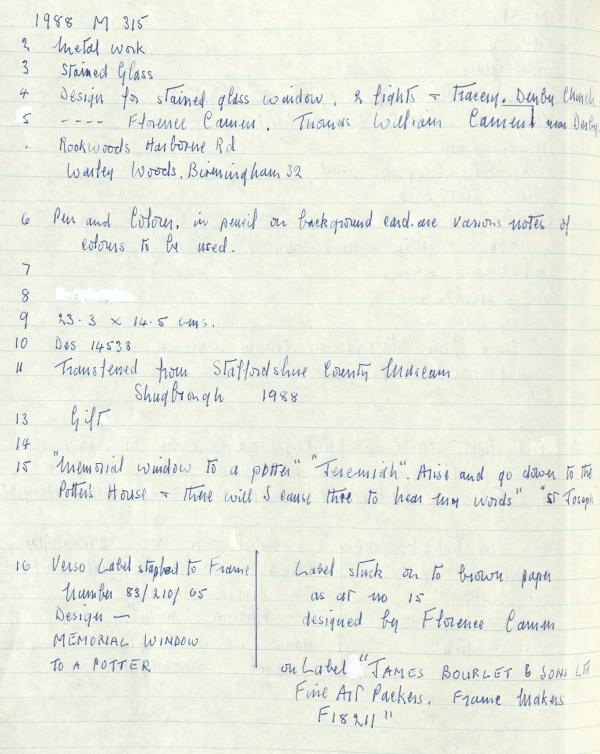 1988 M 315
2 Metal work
3 Stained Glass
4 Design for stained glass window, 2 lights + Tracery. Denby Church
5 ---- Florence Camm. Thomas William Camm near Derby
Rookwoods Harborne Rd
Warley Woods, Birmingham 32
6 Pen and Colour, in pencil on background card are various notes of
colours to be used.
7
8
9 23.3 x 14.5 cms.
10 Des 14538
11 Transferred from Staffordshire County Museum
Shugbrough 1988
13 Gift
14
15 "Memorial window to a potter" "Jeremiah". Arise and go down to the
Potter's House + there will I cause thee to hear my words" "St Joseph
16 Verso Label stapled to Frame
Number 83/210/65
Design —
MEMORIAL WINDOW
TO A POTTER
Label stuck on to brown paper
as at no 15
designed by Florence Camm
on Label "JAMES BOURLET & SONS LTD
Fine Art Packers. Frame Makers
F18211"